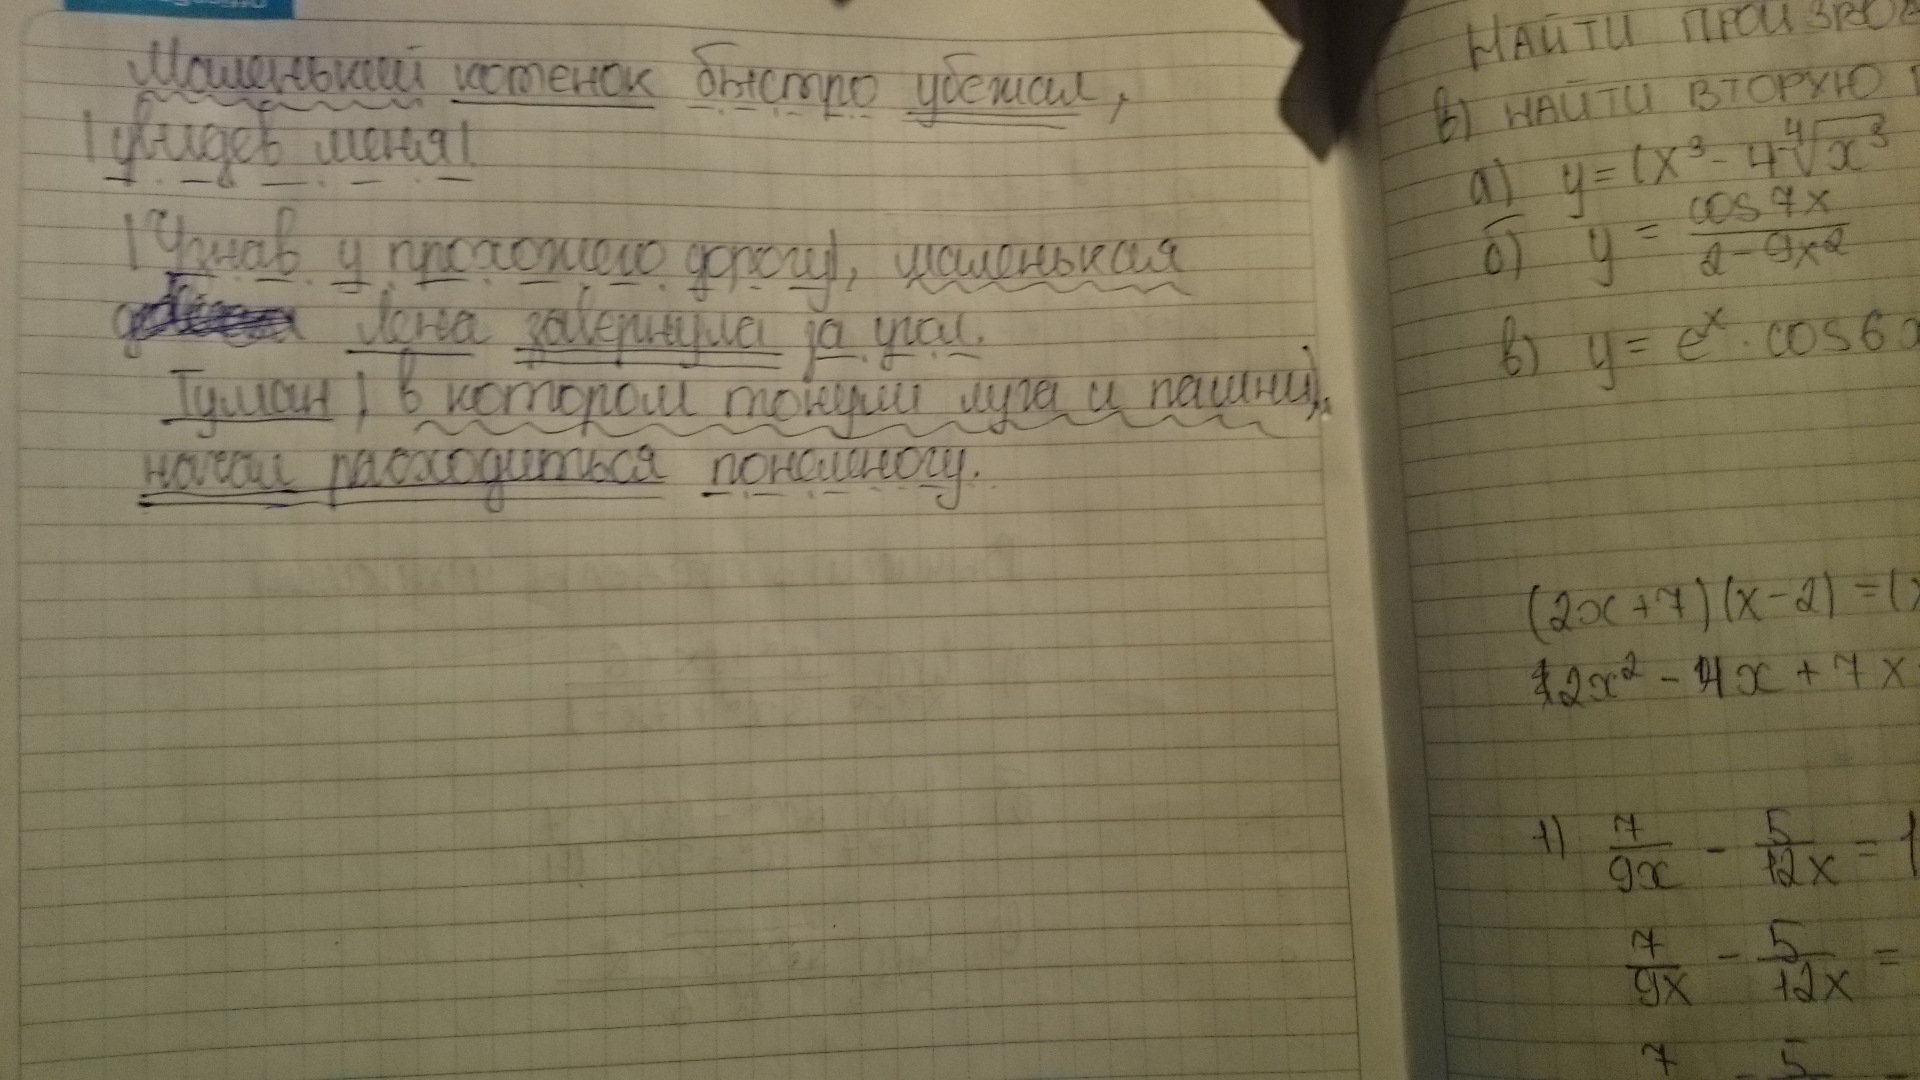 Маленький котенок быстро убежал,
|увидев меня|
|Узнав у прохожего дорогу|, маленькая
Лена завернула за угол.
Туман | в котором тонули луга и пашни|,
начал расходиться понемногу.
НАЙТИ
в) НАЙТИ ВТОРУЮ
а) y = (x³ - 4∜x³
б) y = cos7x / 2-9x²
в) y = eˣ · cos6x
(2x+7)(x-2) = (x
2x² - 4x + 7x
1) 7/9x - 5/12x = 1
7/9x - 5/12x =
7 - 5 -